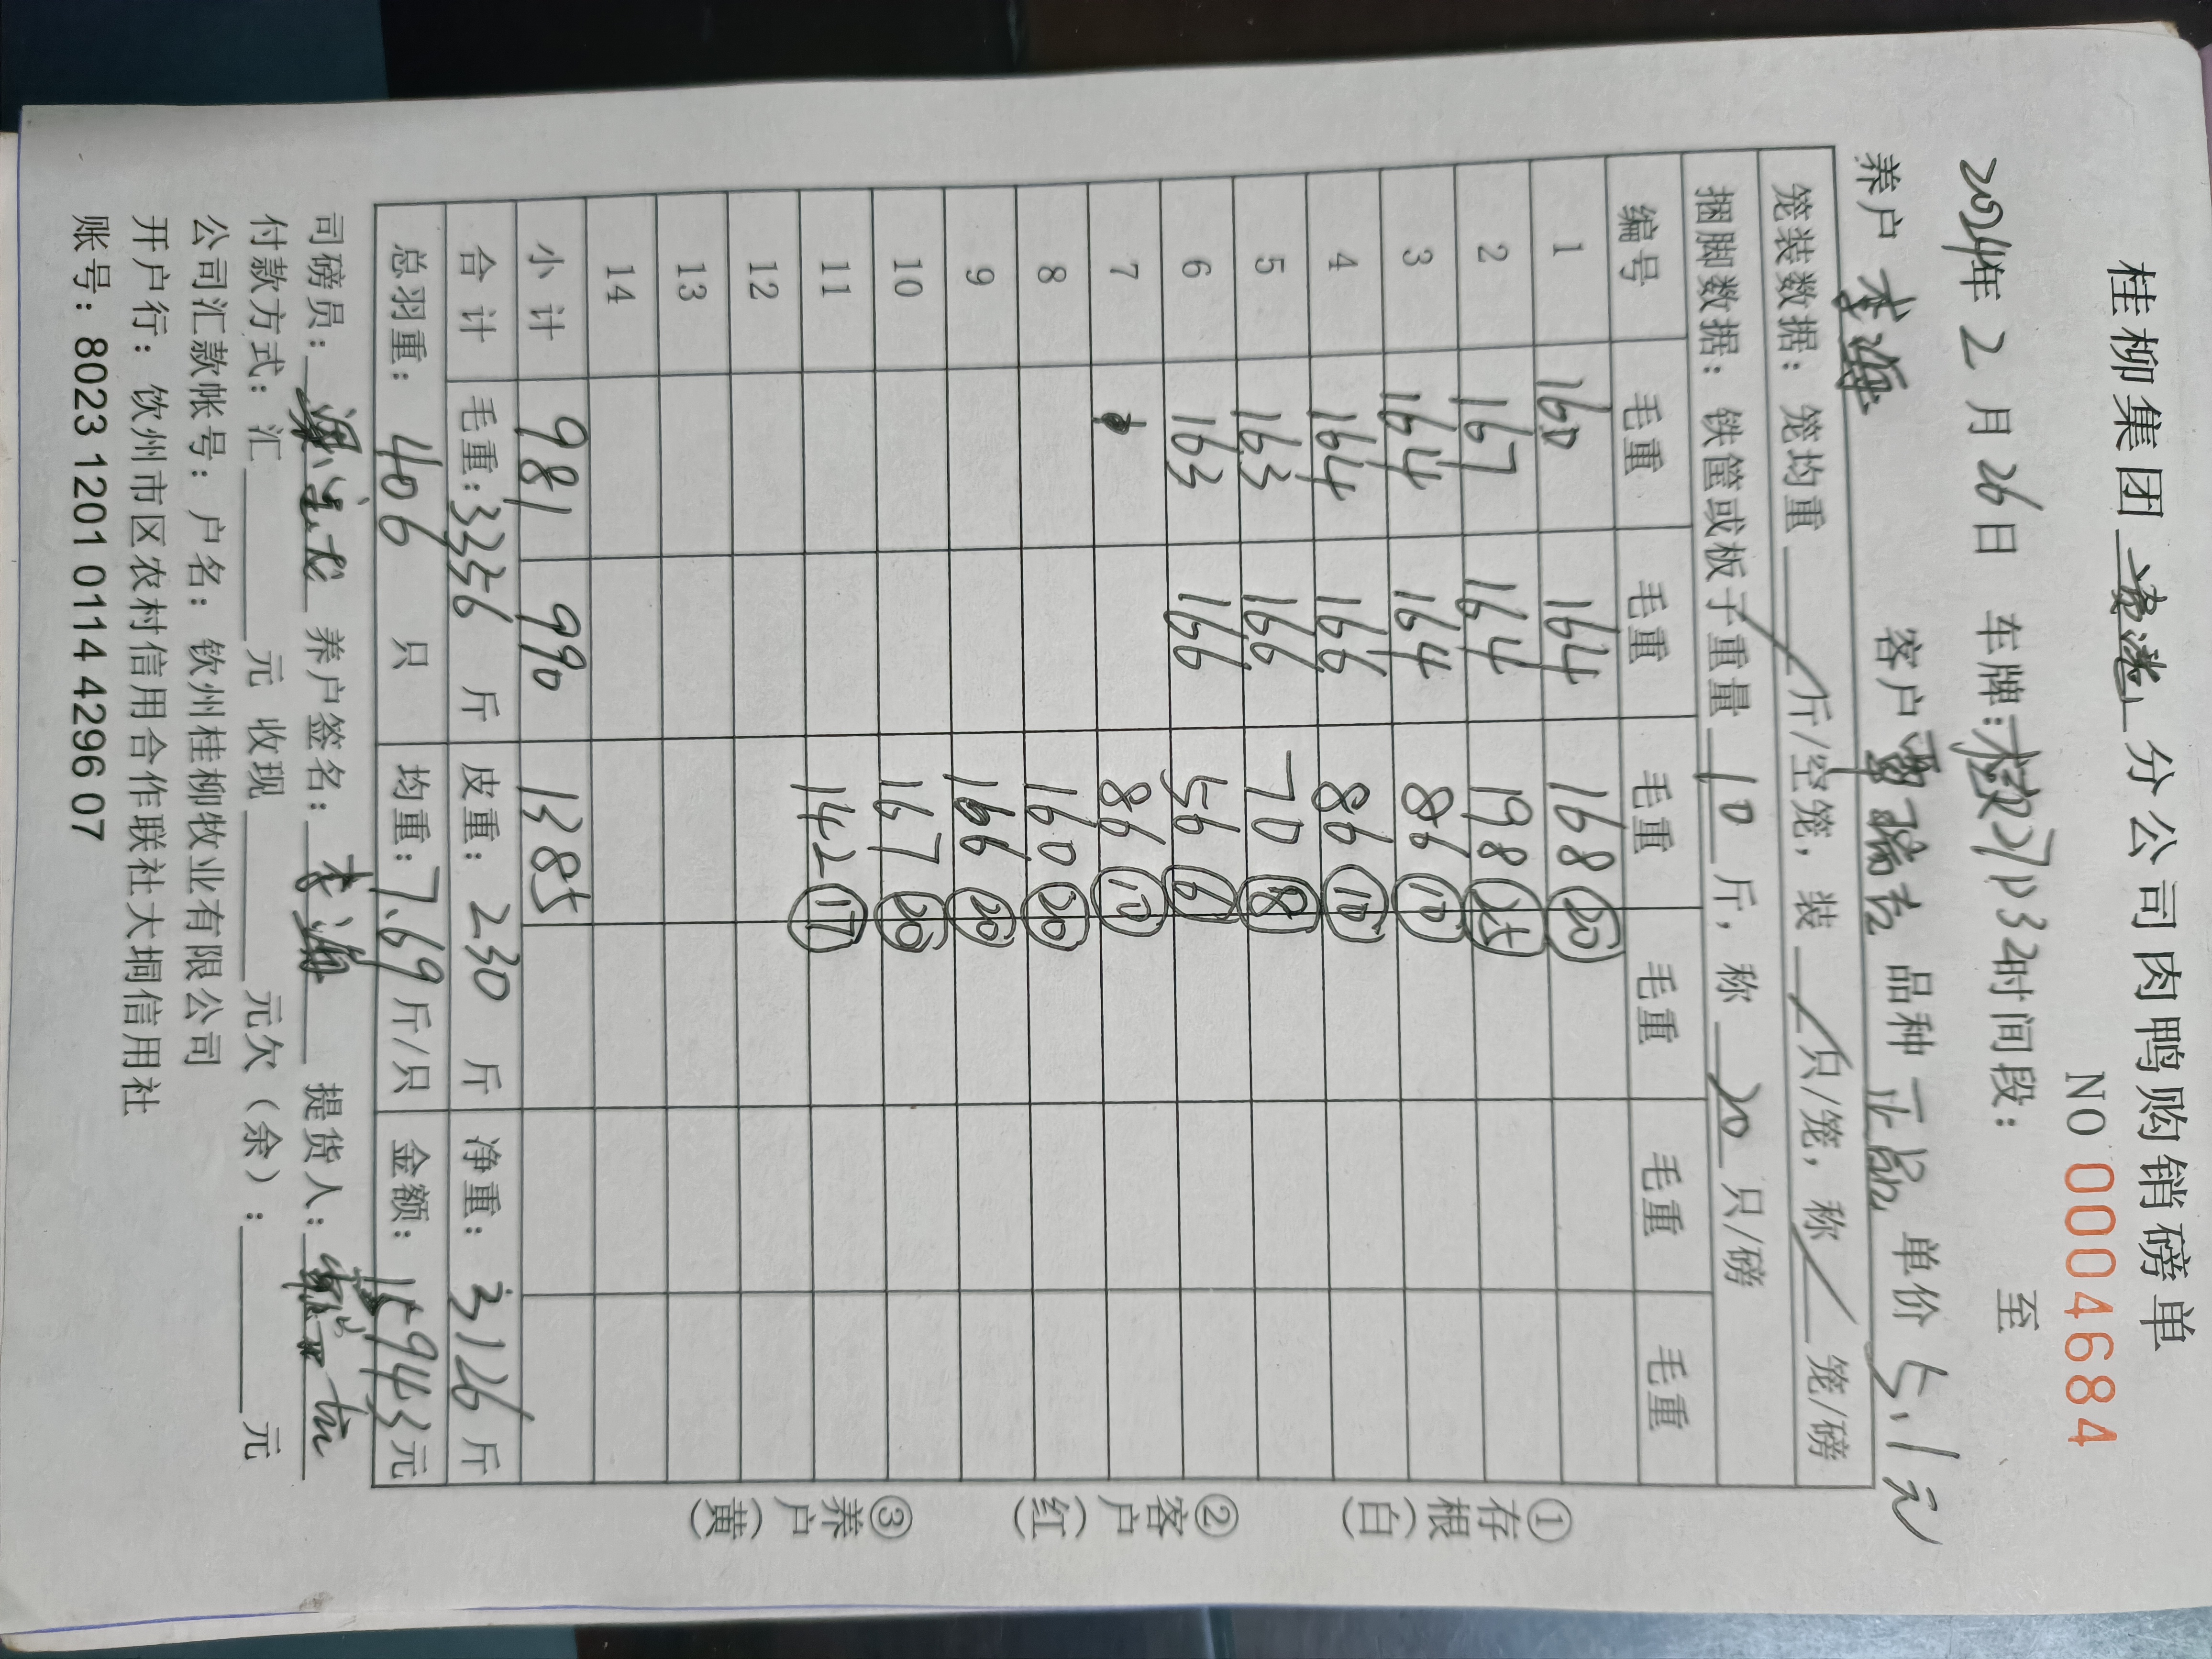 桂柳集团 分公司肉鸭购销磅单
NO 0004684
2024年 2 月 26日 车牌: 时间段: 至
养户 李海 客户 品种 一品 单价 5.1元
笼装数据: 笼均重 斤/空笼, 装 只/笼, 称 笼/磅
捆脚数据: 铁筐或板子重量 10 斤, 称 20 只/磅
编号 毛重 毛重 毛重 毛重 毛重 毛重
1 160 164 168 ⑳
2 167 164 198
3 164 164 86 ⑩
4 164 166 86 ⑩
5 163 166 70 ⑧
6 163 166 56 ⑥
7 86 ⑩
8 160 ⑳
9 166 ⑳
10 167 ⑳
11 142 ⑰
12
13
14
小计 981 990 1385
合计 毛重:3356 斤 皮重: 230 斤 净重: 3126 斤
总羽重: 406 只 均重:7.69斤/只 金额: 15943元
司磅员: 养户签名: 李海 提货人:
付款方式: 汇 元 收现 元欠(余): 元
公司汇款帐号: 户名: 钦州桂柳牧业有限公司
开户行: 饮州市区农村信用合作联社大垌信用社
账号: 8023 1201 0114 4296 07
①存根(白) ②客户(红) ③养户(黄)